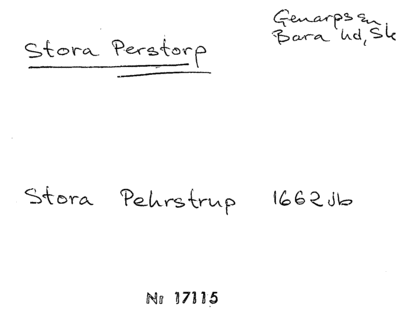 Stora Perstorp
Genarps sn
Bara hd, Sk
Stora Pehrstrup 1662 jb
Nr 17115